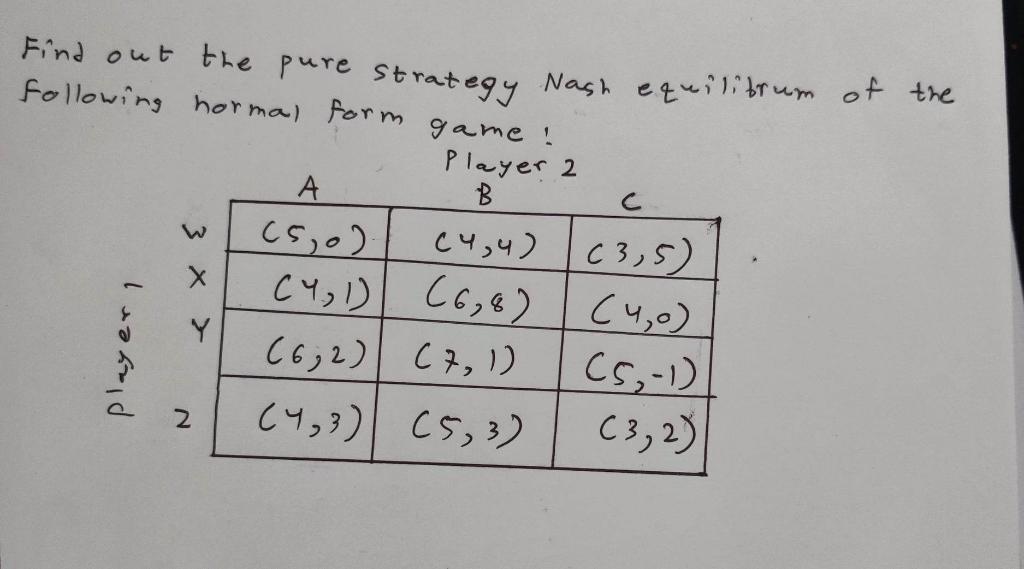 Find out the pure strategy Nash equilibrum of the
following normal form game !
Player 2
A B C
W (5,0) (4,4) (3,5)
X (4,1) (6,8) (4,0)
Y (6,2) (7,1) (5,-1)
Z (4,3) (5,3) (3,2)
Player 1